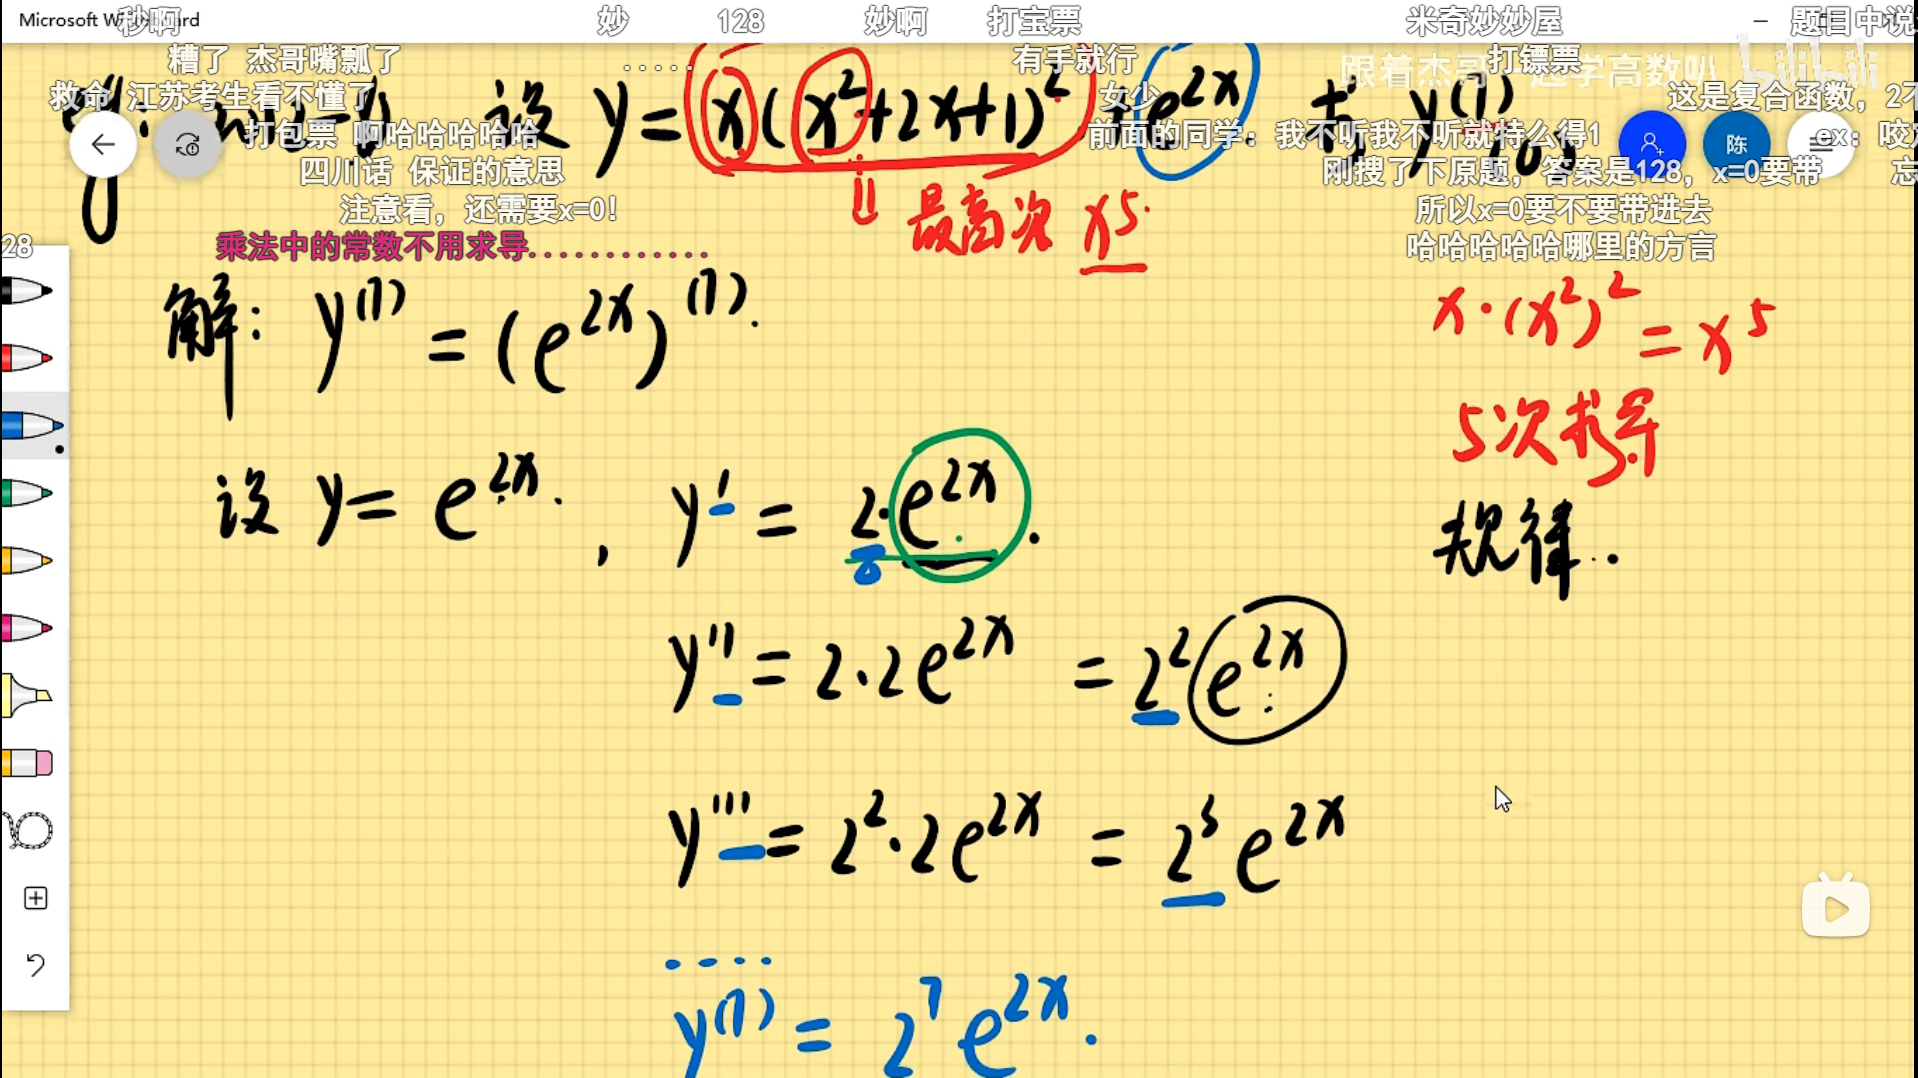 Microsoft Whiteboard
秒啊 妙 128 妙啊 打宝票 米奇妙妙屋 题目中说
糟了 杰哥嘴瓢了 ..... 有手就行 打镖票
跟着杰哥一起学高数叭 bilibili
救命 江苏考生看不懂了 女少 这是复合函数，2不
设 y=x(x²+2x+1)²+e^{2x} 求 y^{(7)}
打包票 啊哈哈哈哈哈 前面的同学：我不听我不听就特么得1 陈 ex：咬
四川话 保证的意思 刚搜了下原题，答案是128，x=0要带 忘
注意看，还需要x=0! 所以x=0要不要带进去
28 乘法中的常数不用求导............ 哈哈哈哈哈哪里的方言
最高次 x⁵.
解： y^{(7)} = (e^{2x})^{(7)}.
x·(x²)² = x⁵
5次求导
设 y= e^{2x}. , y' = 2·e^{2x}.
规律..
y''= 2·2e^{2x} = 2²e^{2x}
y'''= 2²·2e^{2x} = 2³e^{2x}
....
y^{(7)} = 2⁷e^{2x}.